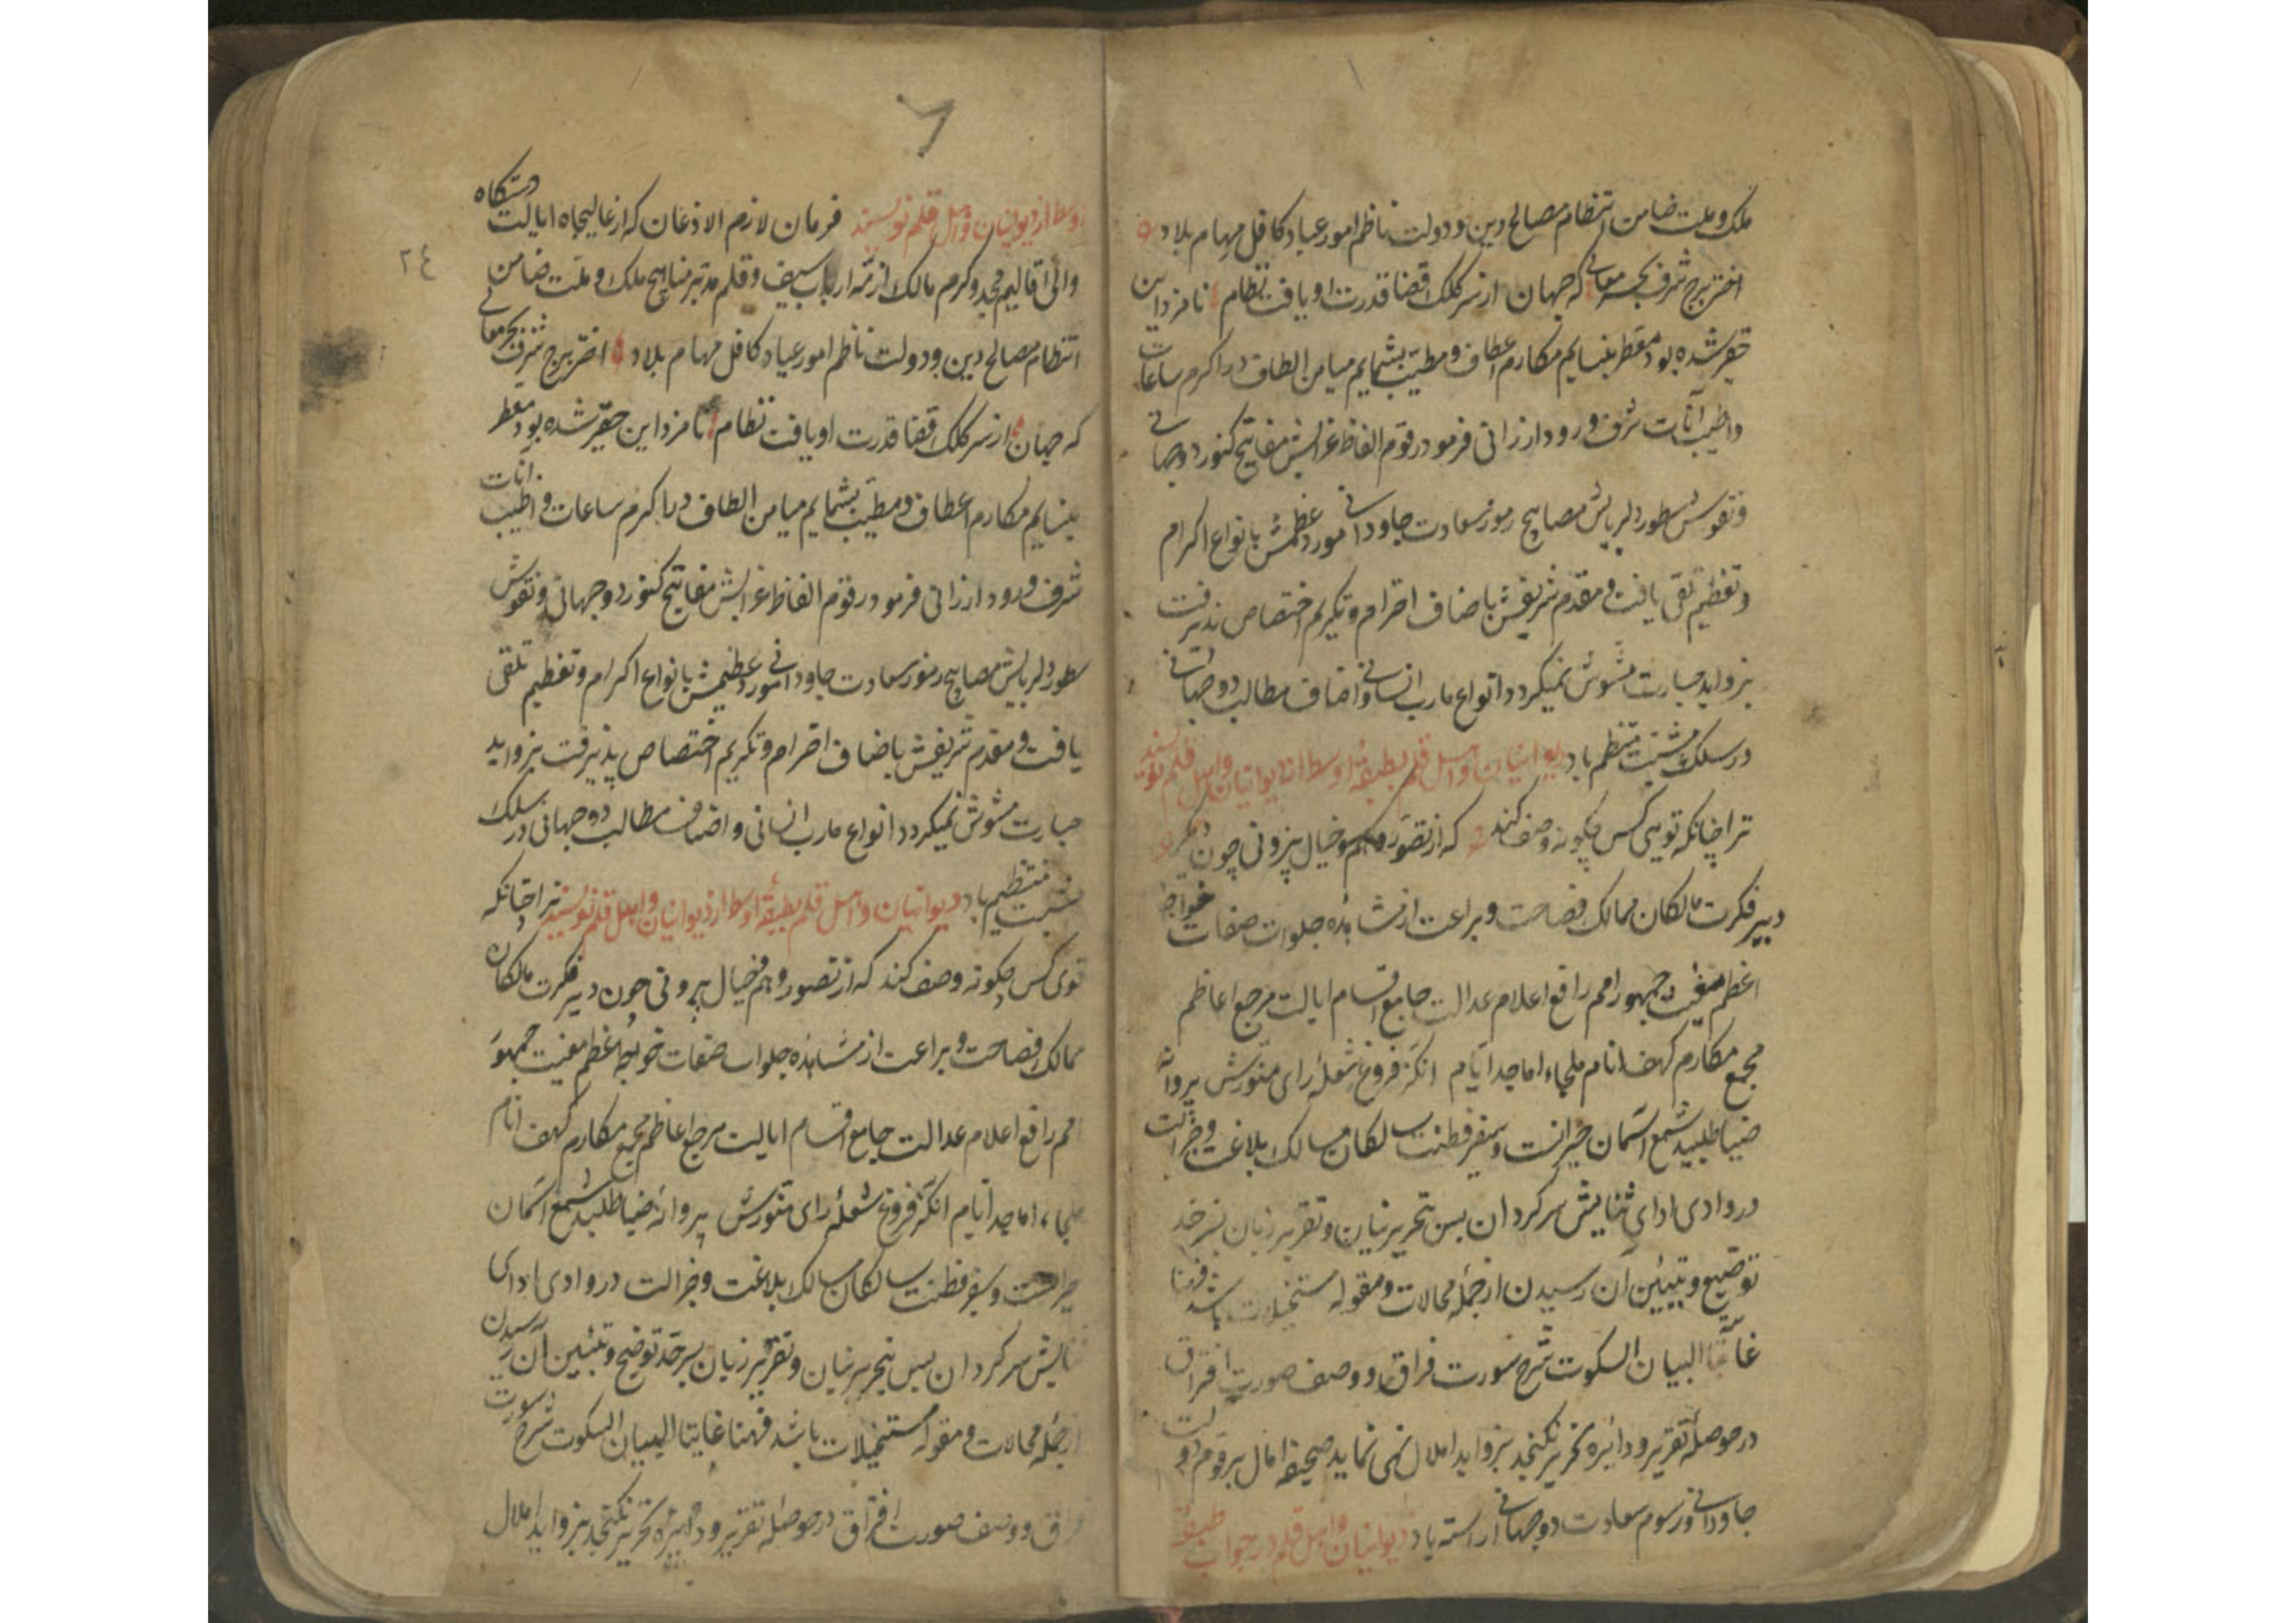 ملک و ملت ضامن انتظام مصالح دین و دولت ناظم امور عباد کافل مهام بلاد
اختر برج شرف بحر معانی که جهان از سر کلک قضا قدرت او یافت نظام نامزد این
حقیر شده بود معطر بنسایم مکارم اعطاف و مطیب بشمایم میامن الطاف در اکرم ساعات
و اطیب آنات شرف ورود ارزانی فرمود رقوم الفاظ غرایبش مفاتیح کنوز دوجهانی
و نقوش سطور دلربایش مصابیح رموز سعادت جاودانی مورد عظمش بانواع اکرام
و تعظیم تلقی یافت و مقدم شریفش باضاف احترام و تکریم اختصاص پذیرفت
بزواید عبارت مشوش نمیکردد انواع مارب انسانی و اضاف مطالب دوجهانی
در سلک مشیت منتظم باد دیوانیان و اهل قلم بطبقهٔ اوسط از دیوانیان و اهل قلم نویسند
ترا چنانکه تویی کس چکونه وصف کند که از تصور و هم و خیال بیرونی چون
دبیر فکرت مالکان ممالک فصاحت و براعت از مشاهده جلوات صفات خواجه
اعظم مغیث جمهور امم رافع اعلام عدالت جامع اقسام ایالت مرجع اعاظم
مجمع مکارم کهف انام ملجاء اماجد ایام انکه فروغ شعلهٔ رای منورش پروانه
ضیا طلبید شمع آسمان حیرانست و سفیر فطنت سالکان مسالک بلاغت و جزالت
در وادی ادای ثنایش سرکردان بس بتحریر بنان و تقریر زبان بسرحد
توضیح و تبیین آن رسیدن از جمله محالات و مقوله مستحیلات باشد فهنا
غایتا البیان السکوت شرح سورت فراق و وصف صورت افتراق
در حوصلهٔ تقریر و دایره تحریر نکنجد بزواید املال نمی نماید صحیفه امال برقوم دولت
جاودانی و رسوم سعادت دوجهانی اراسته باد دیوانیان و اهل قلم در جواب طبقهٔ
اوسط از دیوانیان و اهل قلم نویسند فرمان لازم الاذعان که از عالیجاه ایالت دستکاه
والی اقالیم مجد و کرم مالک ازمهٔ ارباب سیف و قلم مدبر مناهج ملک و ملت ضامن
انتظام مصالح دین و دولت ناظم امور عباد کافل مهام بلاد اختر برج شرف بحر معانی
که جهان از سر کلک قضا قدرت او یافت نظام نامزد این حقیر شده بود معطر
بنسایم مکارم اعطاف و مطیب بشمایم میامن الطاف در اکرم ساعات و اطیب آنات
شرف ورود ارزانی فرمود رقوم الفاظ غرایبش مفاتیح کنوز دوجهانی و نقوش
سطور دلربایش مصابیح رموز سعادت جاودانی مورد عظیمش بانواع اکرام و تعظیم تلقی
یافت و مقدم شریفش باضاف احترام و تکریم اختصاص پذیرفت بزواید
عبارت مشوش نمیکردد انواع مارب انسانی و اضاف مطالب دوجهانی در سلک
مشیت منتظم باد دیوانیان و اهل قلم بطبقهٔ اوسط از دیوانیان و اهل قلم نویسند ترا چنانکه
توی کس چکونه وصف کند که از تصور و هم و خیال بیرونی چون دبیر فکرت مالکان
ممالک فصاحت و براعت از مشاهده جلوات صفات خواجهٔ اعظم مغیث جمهور
امم رافع اعلام عدالت جامع اقسام ایالت مرجع اعاظم مجمع مکارم کهف انام
ملجاء اماجد ایام انکه فروغ شعلهٔ رای منورش پروانه ضیا طلبید شمع آسمان
حیرانست و سفیر فطنت سالکان مسالک بلاغت و جزالت در وادی ادای
ثنایش سرکردان بس بتحریر بنان و تقریر زبان بسرحد توضیح و تبیین آن رسیدن
از جمله محالات و مقوله مستحیلات باشد فهنا غایتا البیان السکوت شرح سورت
فراق و وصف صورت افتراق در حوصلهٔ تقریر و دایره تحریر نکنجد بزواید املال
٢٤